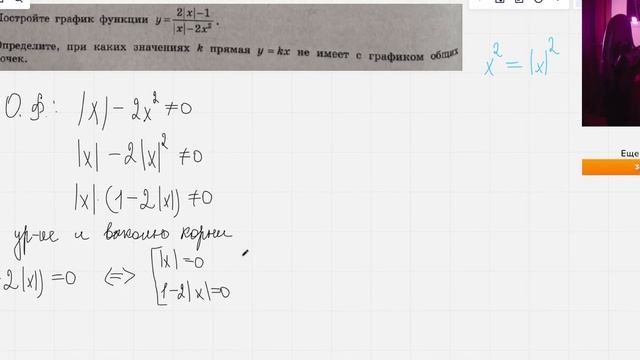 Постройте график функции y = 2|x|−1 / |x|−2x² .
Определите, при каких значениях k прямая y = kx не имеет с графиком общих
точек.
x² = |x|²
О.Ф.: |x| − 2x² ≠ 0
|x| − 2|x|² ≠ 0
|x|·(1−2|x|) ≠ 0
ур-ие и корни
2|x|) = 0 ⇔ [ |x| = 0
1−2|x| = 0
Еще